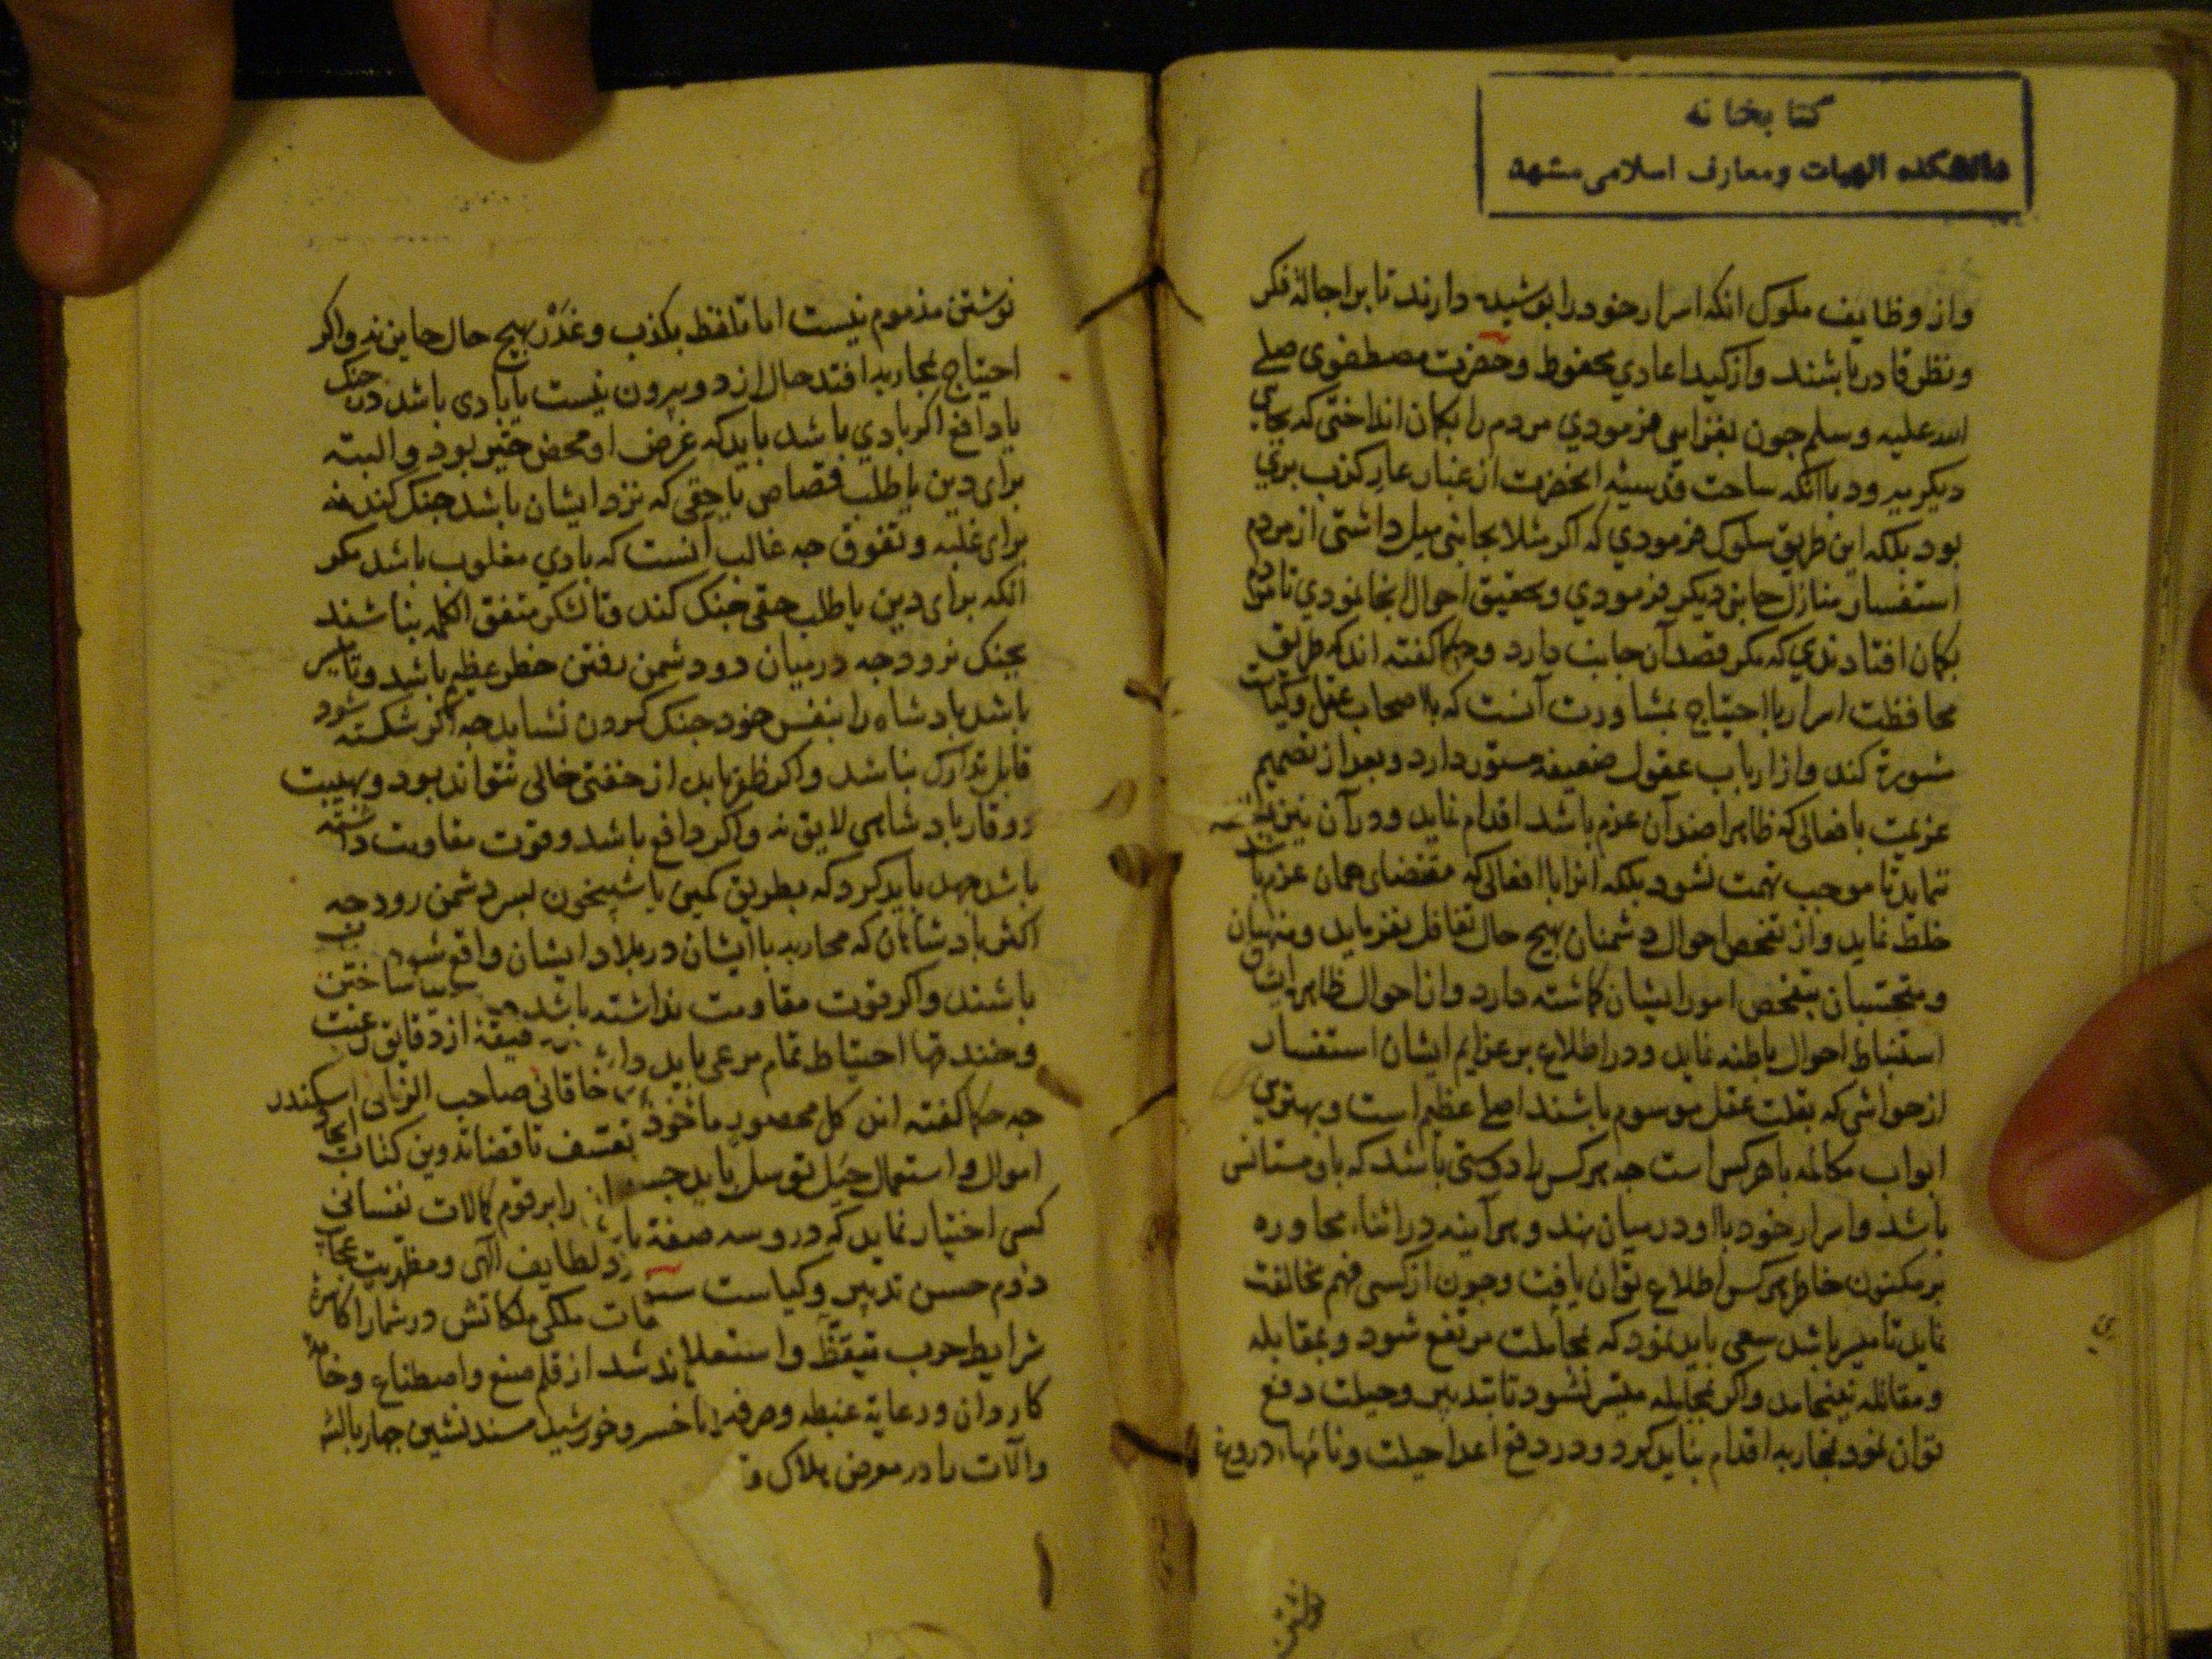 کتابخانه
دانشکده الهیات ومعارف اسلامی مشهد
واز وظایف ملوک انکه اسرار خود را پوشیده دارند تا بر اجالهٔ فکر
ونظر قادر باشند واز کید اعادی محفوظ وحضرت مصطفوی صلے
الله علیه وسلم چون بغزایی فرمودی مردم را بکمان انداختی که بجای
دیکر میرود با انکه ساحت قدسیه انحضرت از غبار عار کذب بری
بود بلکه این طریق سلوک فرمودی که اکر مثلا بجانبی میل داشتی از مردم
استفسار منازل جانبی دیکر فرمودی وتحقیق احوال انجا نمودی تا مردم
بکمان افتادندی که مکر قصد آن جانب دارد وحکما کفته اند که طریق
محافظت اسرار با احتیاج بمشاورت آنست که با اصحاب عقل وکیاست
شورة کند واز ارباب عقول ضعیفه مستور دارد وبعد از تصمیم
عزیمت بافعالی که ظاهرا ضد آن عزم باشد اقدام نماید ودر آن نیز
ننماید تا موجب تهمت نشود بلکه انرا با افعالی که مقتضای همان عزم باشد
خلط نماید واز تفحص احوال دشمنان بهیچ حال تغافل نفرماید ومنهیان
ومتجسسان بتفحص امور ایشان کماشته دارد واز احوال ظاهر ایشان
استنباط احوال باطنه نماید ودر اطلاع بر عزایم ایشان استفسار
از حواشی که بقلت عقل موسوم باشند اصلی عظیم است وبهترین
ابواب مکالمه با هر کس است چه هر کس را دوستی باشد که باو مستانس
باشد واسرار خود با او در میان نهد وهر آینه در اثناء محاوره
بر مکنون خاطر هر کس اطلاع توان یافت وچون از کسی فهم مخالفت
نماید تا میسر باشد سعی باید نمود که بمجاملت مرتفع شود وبمقابله
ومقاتله نینجامد واکر بمجامله میسر نشود تا بتدبیر وحیلت دفع
توان نمود بمحاربه اقدام نباید کرد ودر دفع اعدا حیلت ونامهاء دروغ
نوشتن
نوشتن مذموم نیست اما تلفظ بکذب وغدر بهیچ حال جایز نه واکر
احتیاج بمحاربه افتد حال از دو بیرون نیست یا بادی باشد در جنک
یا دافع اکر بادی باشد باید که غرض او محض خیر بود والبته
برای دین یا طلب قصاص یا حقی که نزد ایشان باشد جنک کند نه
برای غلبه وتفوق چه غالب آنست که بادی مغلوب باشد مکر
انکه برای دین یا طلب حقی جنک کند وتا لشکر متفق الکلمه نباشند
بجنک نرود چه در میان دو دشمن رفتن خطر عظیم باشد وتا میسر
باشد پادشاه را بنفس خود جنک کردن نشاید چه اکر شکسته شود
قابل تدارک نباشد واکر ظفر یابد از خفتی خالی نتواند بود وبهیبت
ووقار پادشاهی لایق نه واکر دافع باشد وقوت مقاومت داشته
باشد جهد باید کرد که بطریق کمین یا شبیخون بسر دشمن رود چه
اکثر پادشاهان که محاربه با ایشان در بلاد ایشان واقع شود
باشند واکر قوت مقاومت نداشته باشد ساختن
وخندقها احتیاط تمام مرعی باید دقیقهٔ از دقایق
چه حکما کفته اند کل محصور ماخوذ خاقانی صاحب الزمانی اسکندر
اموال واستعمال حیل توسل باید جست تا قضا تدوین کتاب
کسی اختیار نماید که در وسه صفة را بر قوم کمالات نفسانی
دوم حسن تدبیر وکیاست لطایف الهی ومظهریت
شرایط حرب تیقظ واستعلا ملکی ملکاتش در شمار
کاردان ورعایة غبطه وصرفه شد از قلم صنع واصطناع
وآلات را در معرض هلاک خسرو خورشید مسند نشین چهار بالش